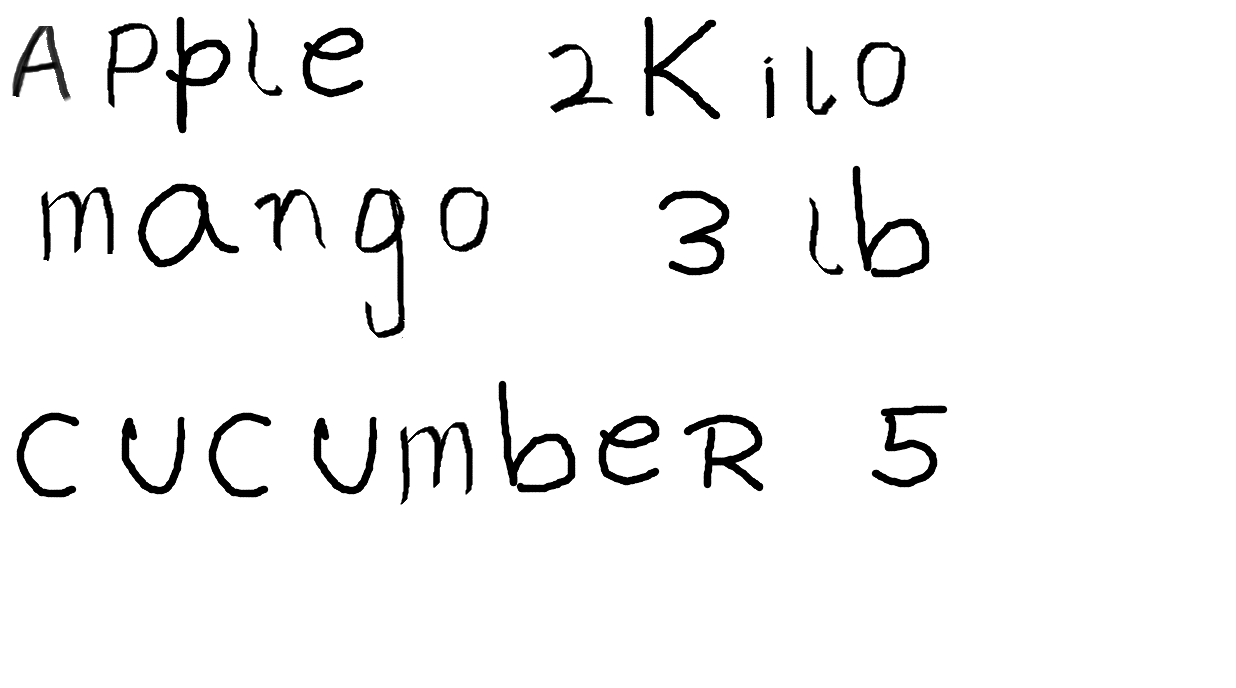 Apple 2 Kilo
mango 3 lb
cucumbeR 5